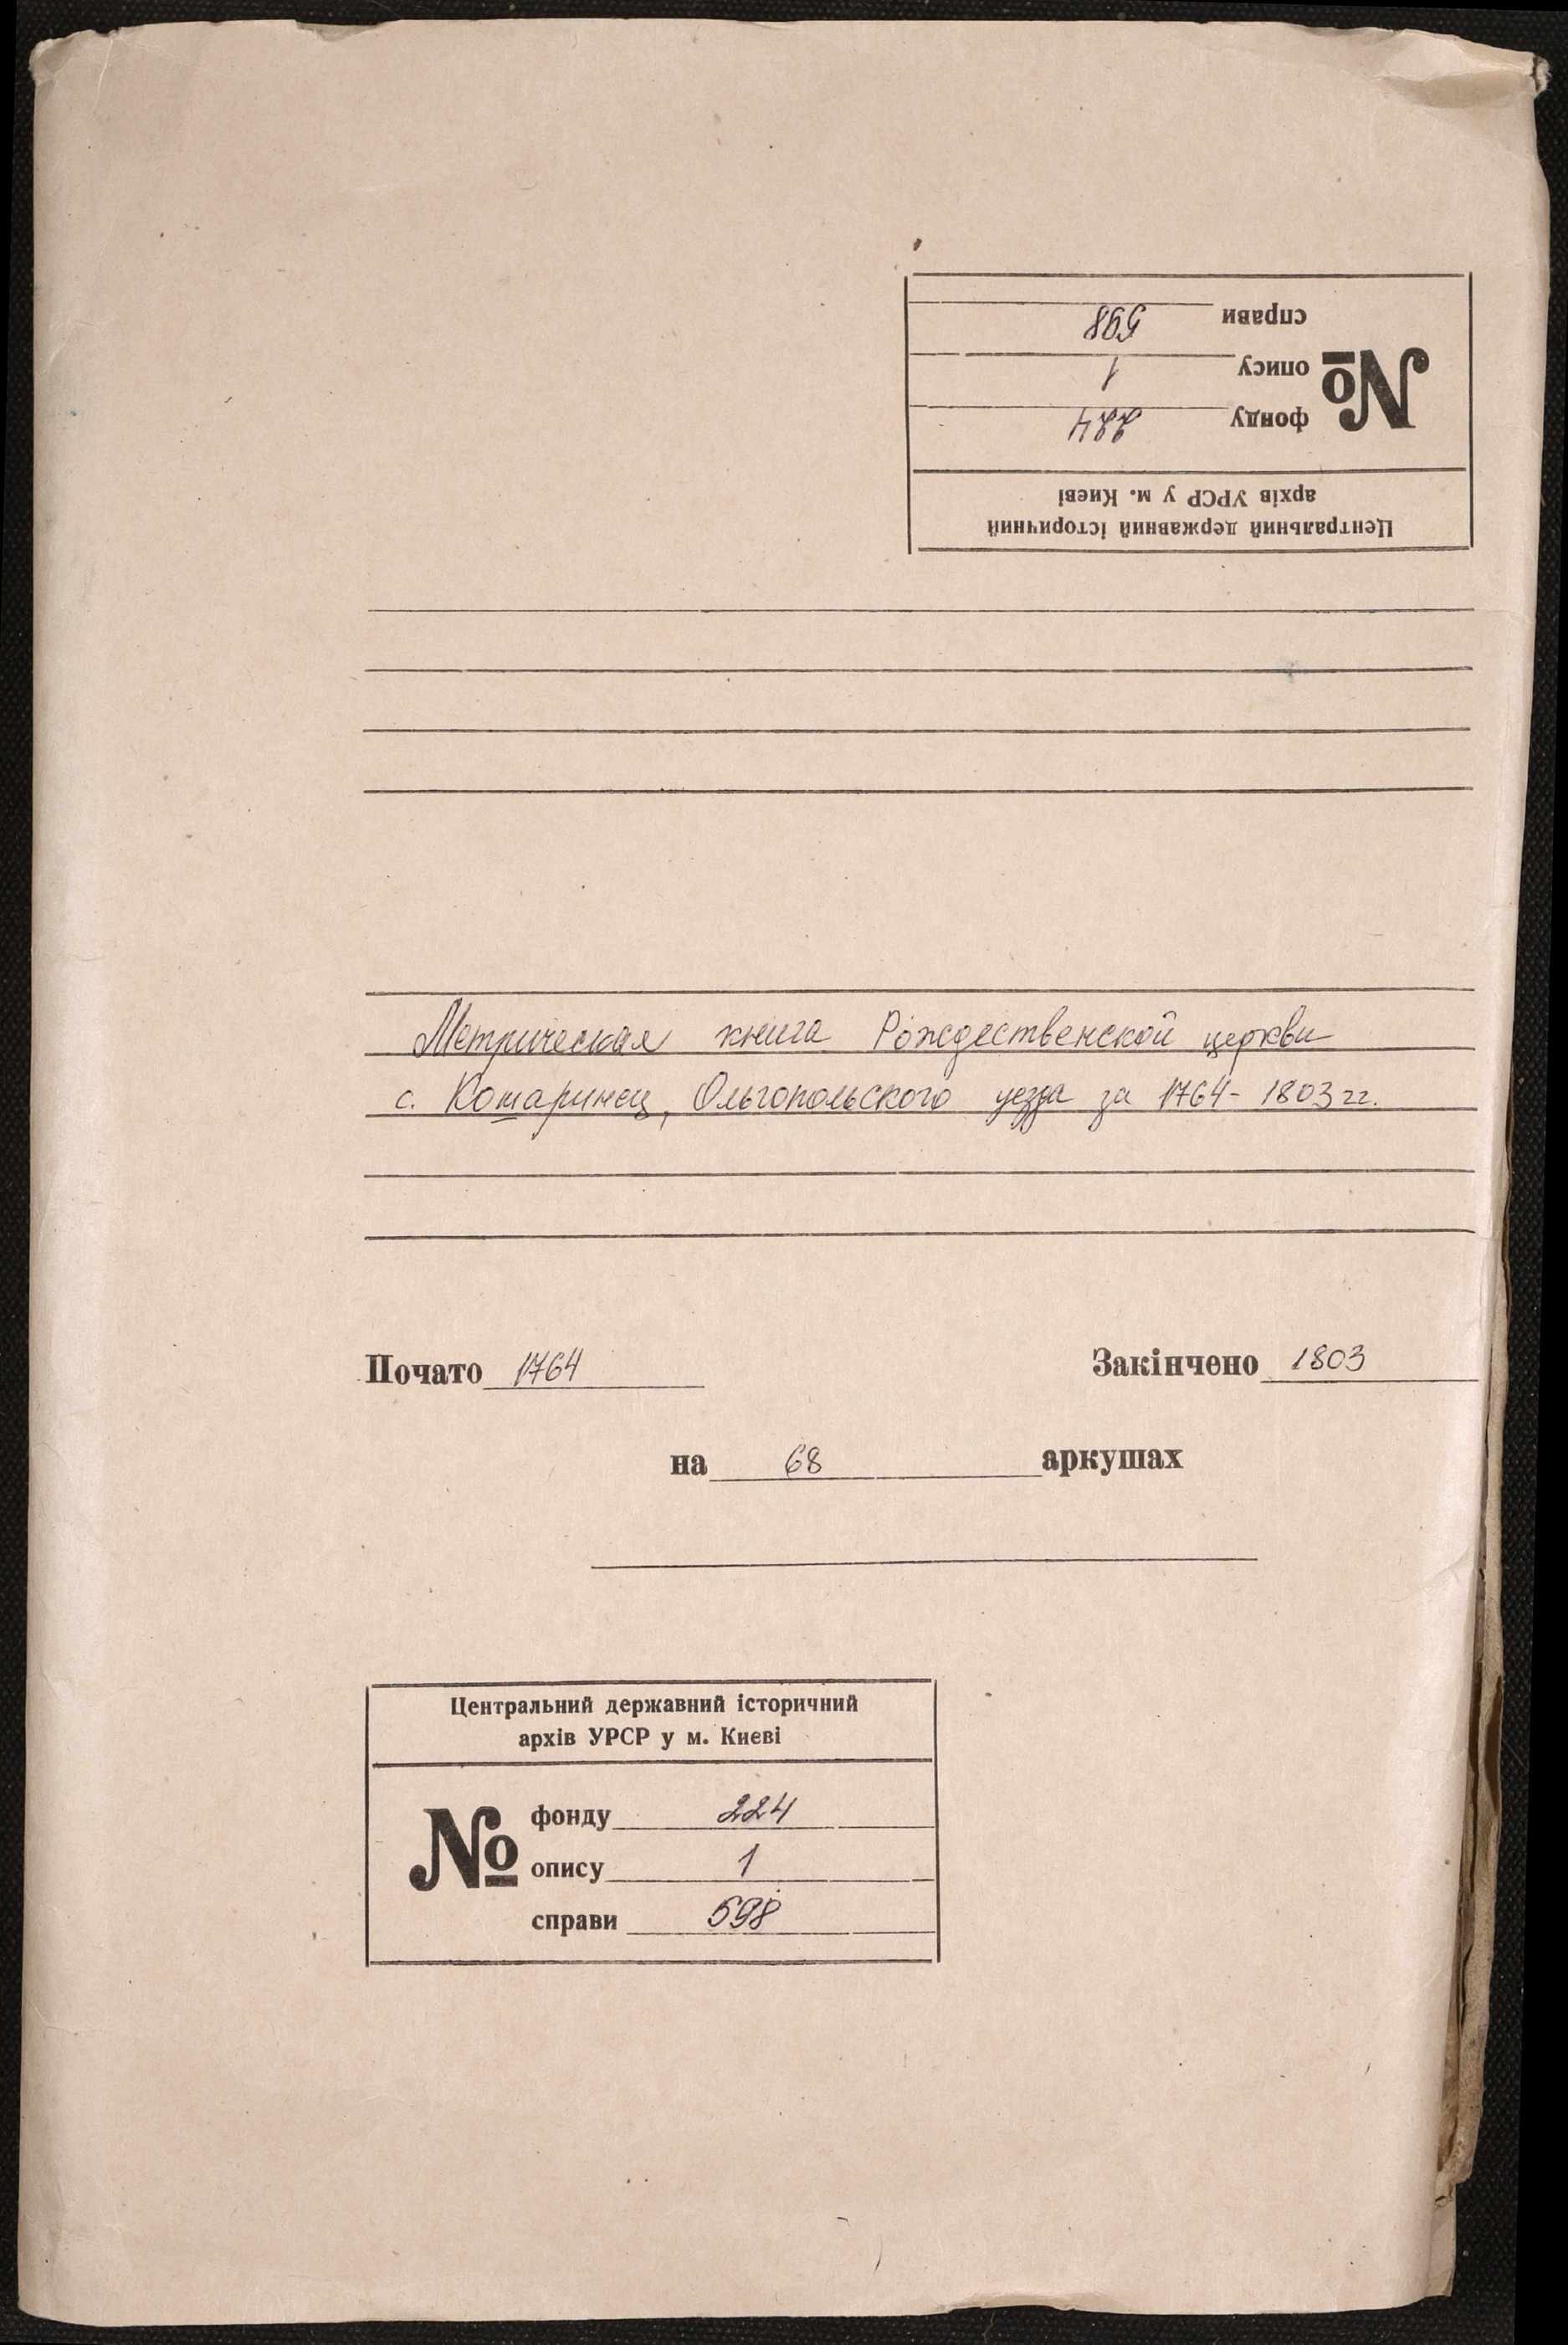 справи 598
опису 1
фонду 224
№
Центральний державний історичний
архів УРСР у м. Києві
Метрическая книга Рождественской церкви
с. Кошаринец, Ольгопольского уезда за 1764-1803 гг.
Почато 1764
Закінчено 1803
на 68 аркушах
Центральний державний історичний
архів УРСР у м. Києві
№
фонду 224
опису 1
справи 598